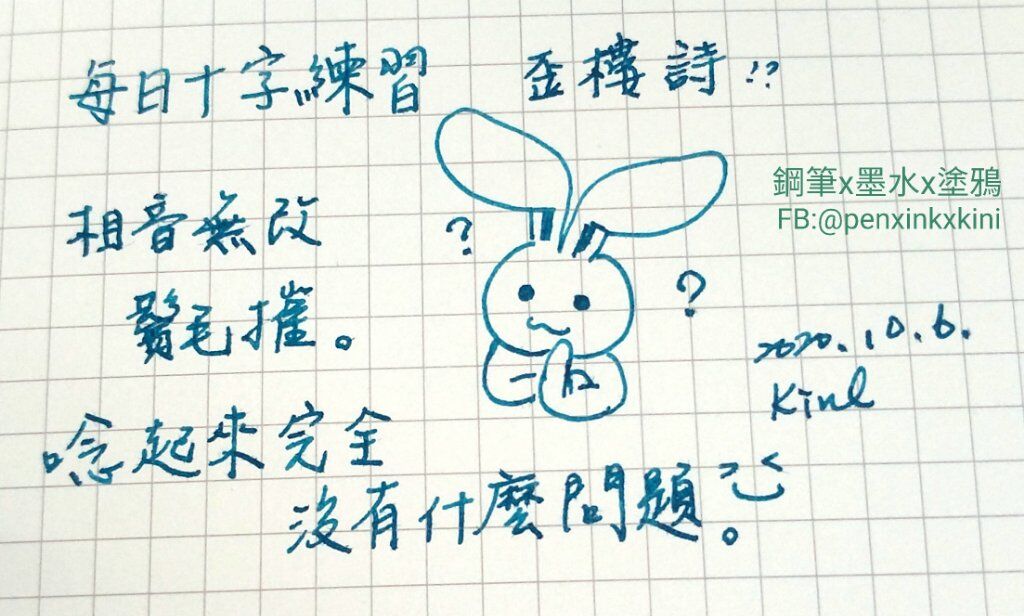 每日十字練習 歪樓詩!?
鋼筆x墨水x塗鴉
FB:@penxinkxkini
相音無改
?
?
鬢毛摧。
2020.10.6.
Kini
唸起來完全
沒有什麼問題。